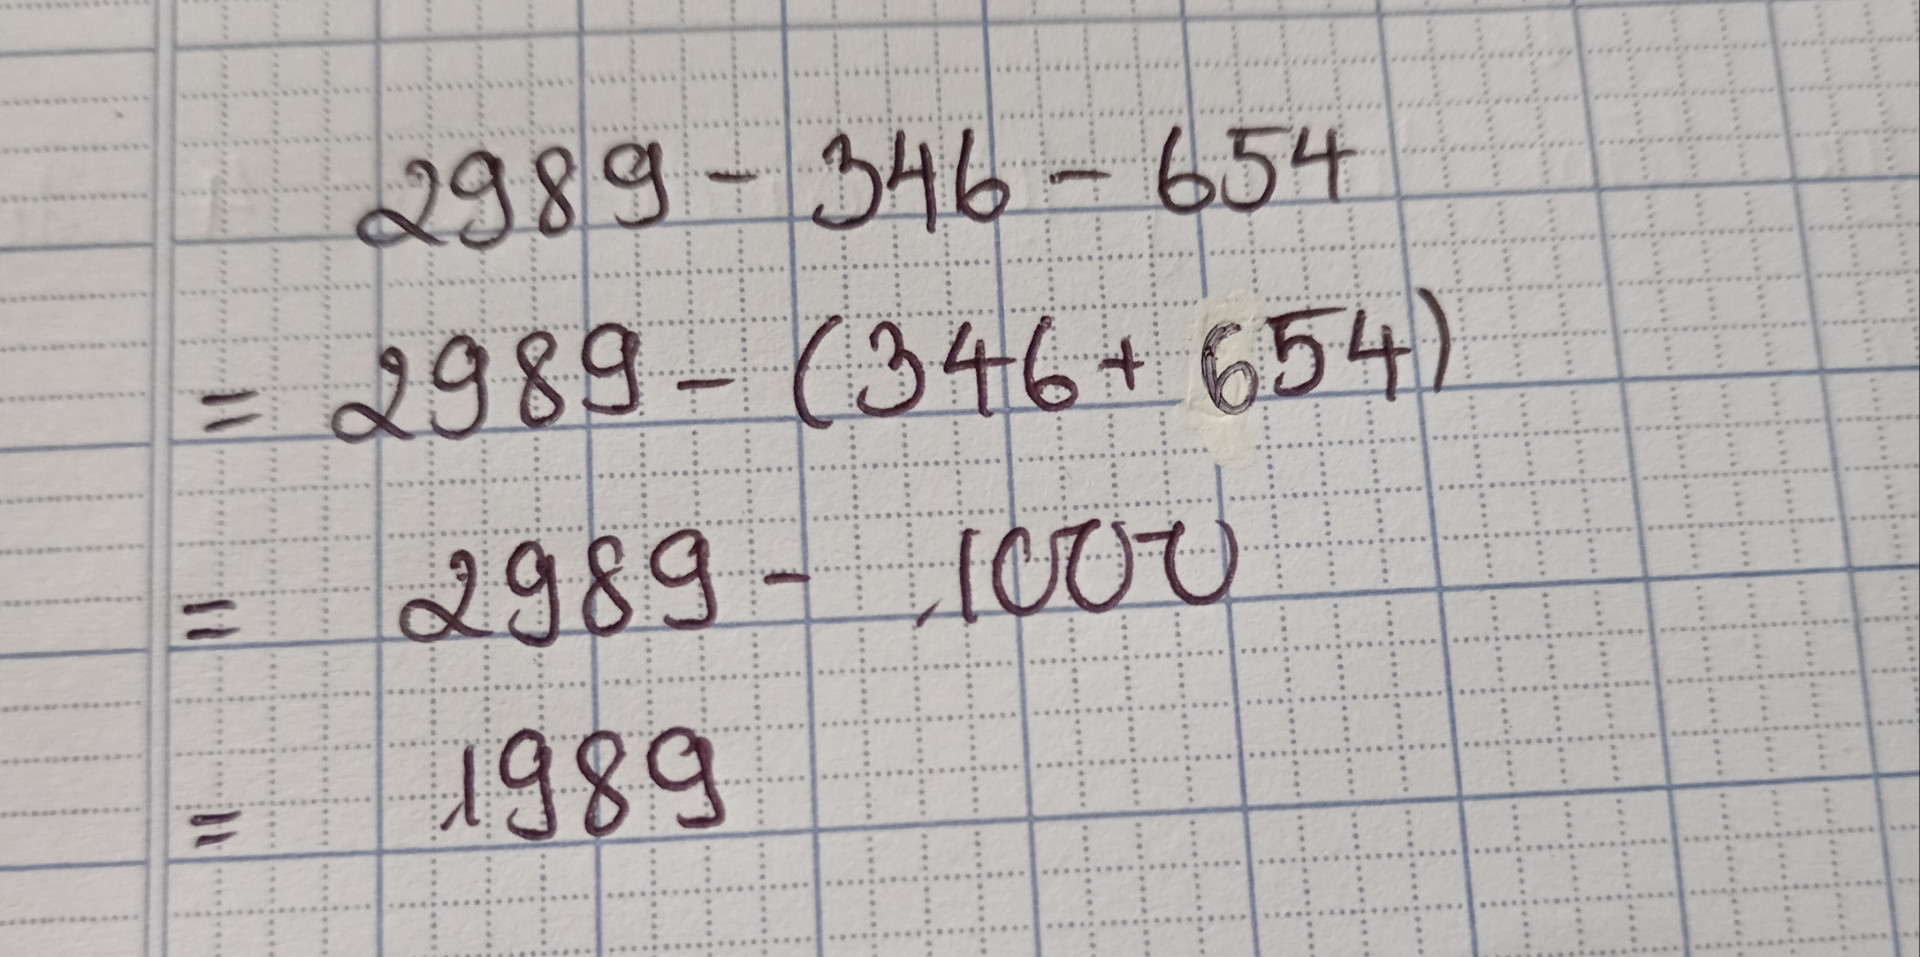 2989 - 346 - 654
= 2989 - (346 + 654)
= 2989 - 1000
= 1989